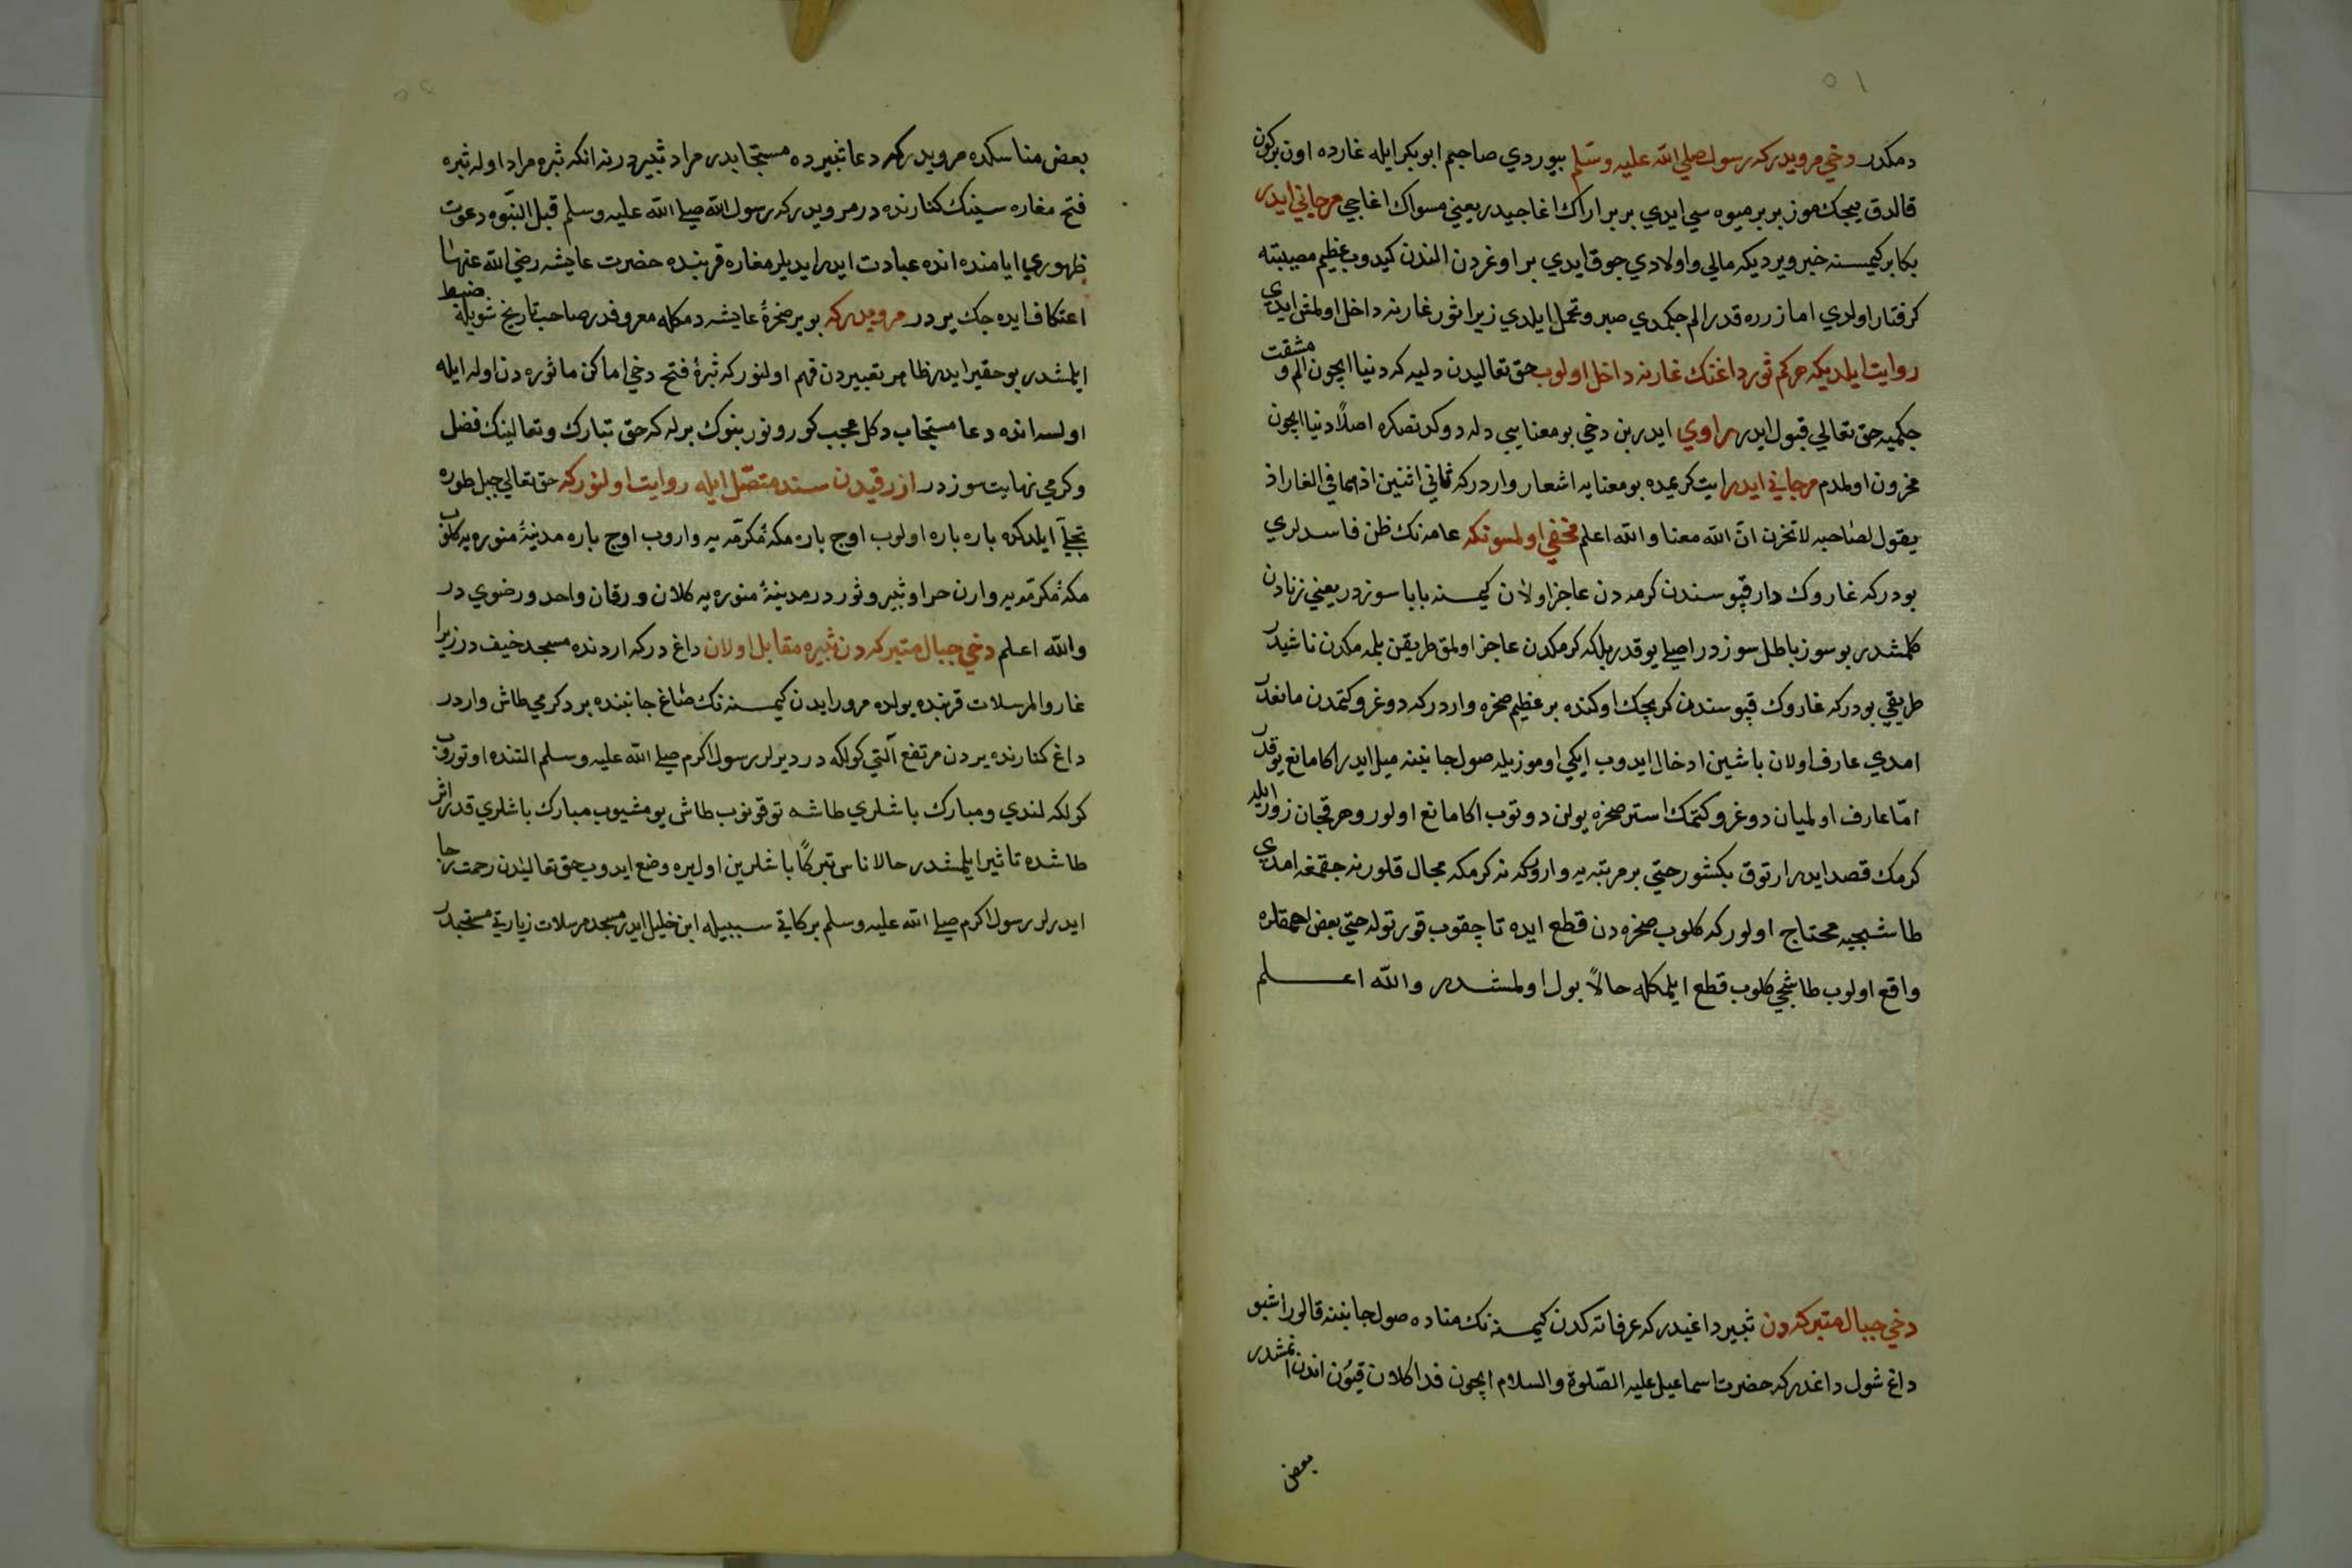 ٥١
دمكدر دخي مرويدركه رسول صلي الله عليه وسلم بيوردي صاحبم ابوبكر ايله غارده اون بركون
قالدق ييجكموز بربر ميوه سي ايدي بربر اراك اغاجيدر يعني مسواك اغاجي مرجاني ايدر
بكا بر كيمسنه خبر ويرديكه مالي واولادي جوق ايدي براوغردن الندن كيدوب عظيم مصيبته
كرفتار اولدي اما زرره قدر الم جكمدي صبر وتحمل ايلدي زيرا ثور غارنه داخل اولمش ايدي
روايت ايلديكه هركم ثور داغنك غارنه داخل اولوب حق تعاليدن دليه كه دنيا ايچون الم و مشقت
جكميه حق تعالي قبول ايدر راوي ايدر بن دخي بو معنايي دله دوكدنصكره اصلاً دنيا ايچون
محزون اولمدم مرجاني ايدر ايت كريمه ده بو معنايه اشعار واردركه ثاني اثنين اذ هما في الغار اذ
يقول لصاحبه لا تحزن ان الله معنا والله اعلم مخفي اولمسونكه عامه نك ظن فاسدلري
بودركه غاروك دار قپوسندن كرمه دن عاجز اولان كيمسنه بابا سوزدر يعني زنادن
كلمشدر بو سوز باطل سوزدر اصلي يوقدر بلكه كرمكدن عاجز اولمق طريقن بلمه مكدن ناشيدر
طريقي بودركه غاروك قپوسندن كريجك اوكنده بر عظيم صخره واردركه دوغرو كتمدن مانعدر
امدي عارف اولان باشين ادخال ايدوب ايكي اوموزيله صول جانبنه ميل ايدر اكا مانع يوقدر
امّا عارف اولميان دوغرو كتمك استر صخره يولن دوتوب اكا مانع اولور وهر قچان زور ايله
كرمك قصد ايدر ارتوق بكشور حتي بر مرتبه يه واروركه نه كرمكه مجال قلور نه جقمغه امدي
طاشجيه محتاج اولوركه كلوب صخره دن قطع ايده تا چقوب قورتوله حتي بعض احمقلره
واقع اولوب طاشجي كلوب قطع ايلمكله حالاً بول اولمشدر والله اعلم
دخي جبال متبركه دن ثبير داغيدركه عرفاته كدن كيمسنه نك مناده صول جانبنه قالور اشبو
داغ شول داغدركه حضرت اسماعيل عليه الصّلوة والسلام ايچون فدا كلان قيون اندن انمشدر
بعض
بعض مناسكده مرويدركه دعا ثبيرده مستجابدر مراد ثبيردرنه انكه ثبره مراد اوله ثبره
فتح مغاره سينك كنارنده در مرويدركه رسول الله صلي الله عليه وسلم قبل النبوه دعوت
ظهوري ايامنده انده عبادت ايدر ايديلر مغاره قربنده حضرت عايشه رضي الله عنها
اعتكاف ايده جك يردر مرويدركه بو ير صخرهٔ عايشه دمكله معروفدر صاحب تاريخ شويله ضبط
ايلمشدر بو حقير ايدر ظاهر تعبيردن فهم اولنوركه ثبرهٔ فتح دخي اماكن ماثوره دن اوله ايله
اولسه انده دعا مستجاب دكل عجب كورونور بنوك برله كه حق تبارك وتعالينك فضل
وكرمي نهايت سوزدر ازرقيدن سند متصّل ايله روايت اولنوركه حق تعالي جبل طوره
تجلّي ايلدكده باره باره اولوب اوچ باره مكهٔ مكرّمه يه واروب اوچ باره مدينهٔ منوره يه كلوب
مكهٔ مكرّمه يه وارن حرا وثبير وثور در مدينهٔ منوره يه كلان ورقان واحد ورضوي در
والله اعلم دخي جبال متبركه دن ثبيره مقابل اولان داغ دركه اردنده مسجد خيف در زيرا
غار والمرسلات قربنده يولده مرور ايدن كيمسنه نك صاغ جانبنده بر دكرمي طاش واردر
داغ كنارنده يردن مرتفع آلتي كولكه در ديرلر رسول اكرم صلي الله عليه وسلم التنده اوتورب
كولكه لندي ومبارك باشلري طاشه توقونوب طاش يومشيوب مبارك باشلري قدر اثر
طاشده تاثير ايلمشدر حالا ناس تبركاً باشلرين اول يره وضع ايدوب حق تعاليدن رحمت رجا
ايدرلر رسول اكرم صلي الله عليه وسلم بركاتي سببيله ابن خليل ايدر مسجد مرسلات زيارتي مستحبدر